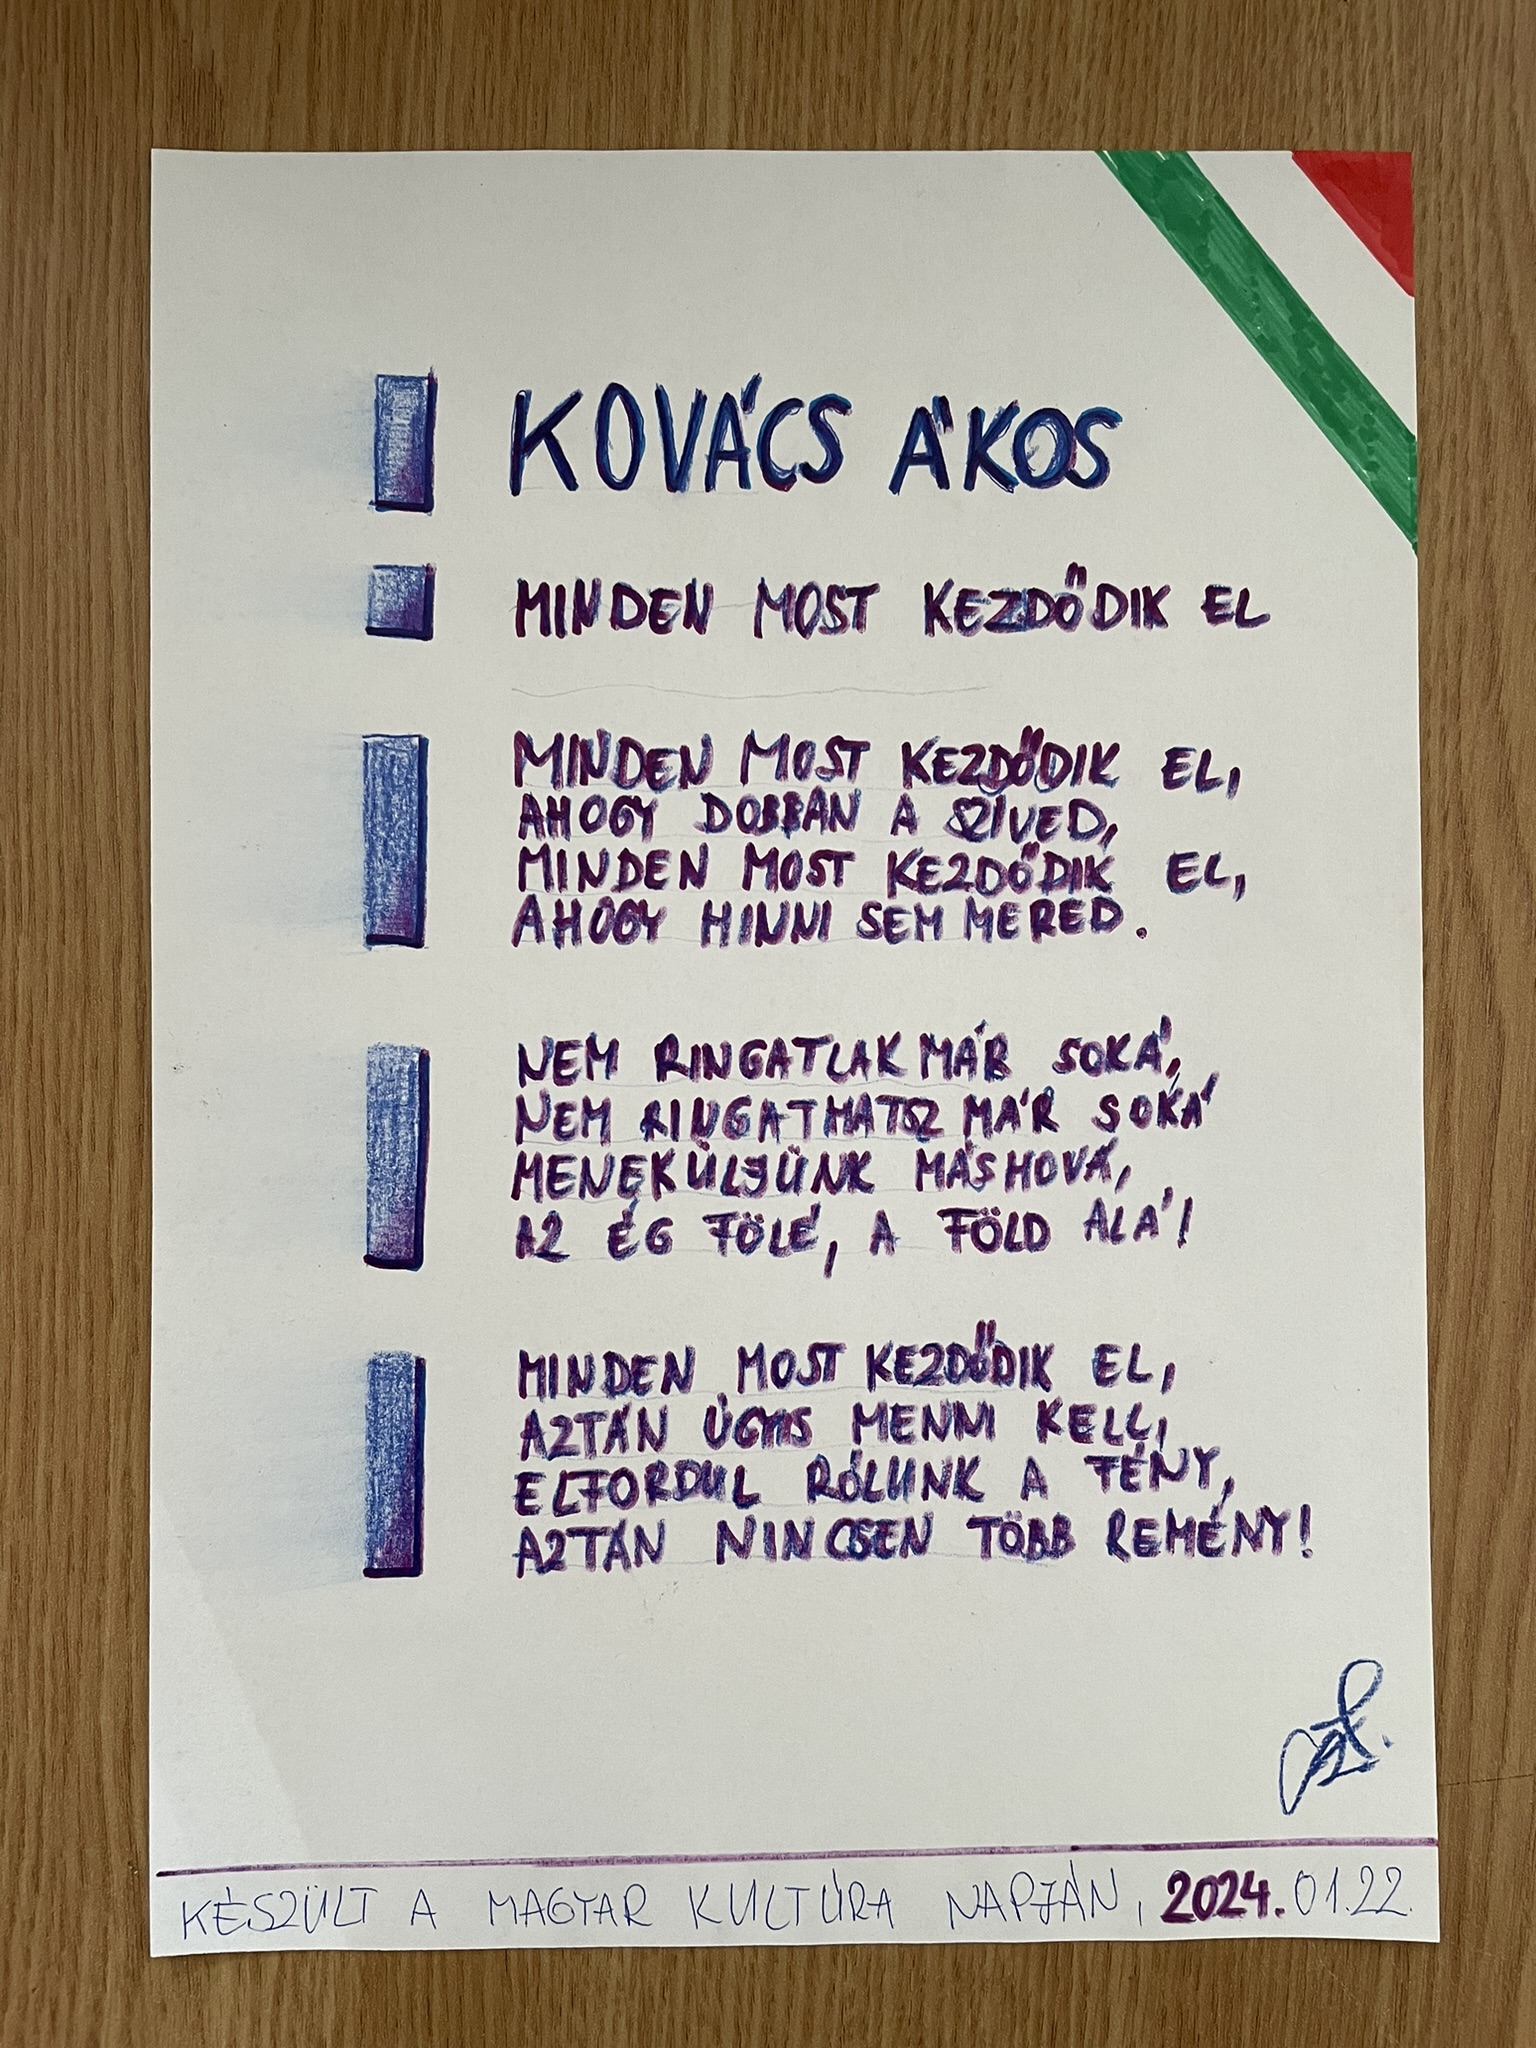 KOVÁCS ÁKOS
MINDEN MOST KEZDŐDIK EL
MINDEN MOST KEZDŐDIK EL,
AHOGY DOBBAN A SZÍVED,
MINDEN MOST KEZDŐDIK EL,
AHOGY HINNI SEM MERED.
NEM RINGATLAK MÁR SOKÁ,
NEM RINGATHATSZ MÁR SOKÁ
MENEKÜLJÜNK MÁSHOVÁ,
AZ ÉG FÖLÉ, A FÖLD ALÁ!
MINDEN MOST KEZDŐDIK EL,
AZTÁN ÚGYIS MENNI KELL,
ELFORDUL RÓLUNK A TÉNY,
AZTÁN NINCSEN TÖBB REMÉNY!
KÉSZÜLT A MAGYAR KULTÚRA NAPJÁN, 2024.01.22.